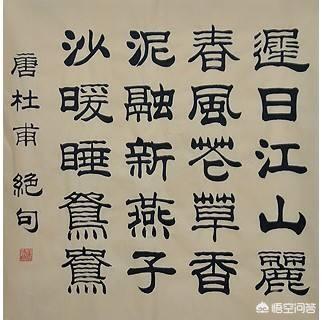 遲日江山麗
春風花草香
泥融新燕子
沙暖睡鴛鴦
唐杜甫絕句
悟空问答